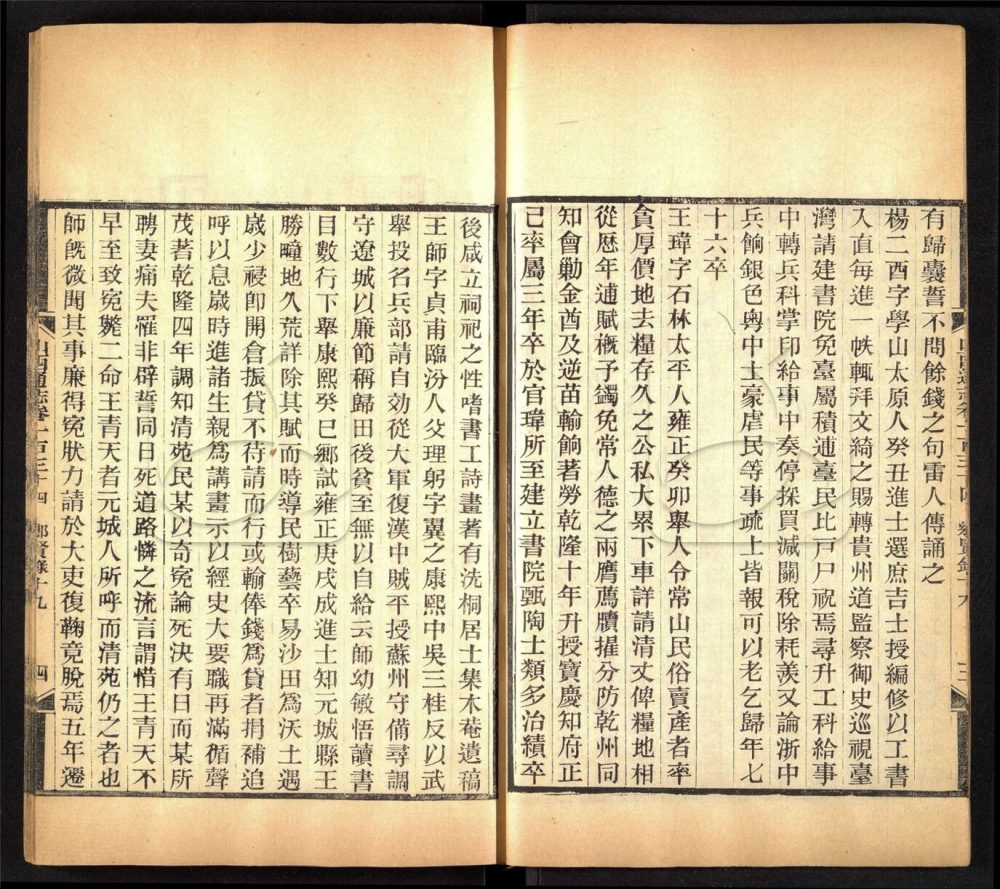 有歸囊誓不問餘錢之句雷人傳誦之
楊二酉字學山太原人癸丑進士選庶吉士授編修以工書
入直每進一帙輒拜文綺之賜轉貴州道監察御史巡視臺
灣請建書院免臺屬積逋臺民比戸尸祝焉尋升工科給事
中轉兵科掌印給事中奏停採買減關稅除耗羨又論浙中
兵餉銀色粵中土豪虐民等事疏上皆報可以老乞歸年七
十六卒
王瑋字石林太平人雍正癸卯舉人令常山民俗賣產者率
貪厚價地去糧存久之公私大累下車詳請清丈俾糧地相
從歴年逋賦概予蠲免常人德之兩膺薦牘擢分防乾州同
知會勦金酋及逆苗輸餉著勞乾隆十年升授寶慶知府正
已率屬三年卒於官瑋所至建立書院甄陶士類多治績卒
山西通志卷一百三十四 鄉賢錄十九 四
後咸立祠祀之性嗜書工詩畫著有洗桐居士集木菴遺稿
王師字貞甫臨汾人父理躬字翼之康熙中吳三桂反以武
舉投名兵部請自効從大軍復漢中賊平授蘇州守備尋調
守遼城以廉節稱歸田後貧至無以自給云師幼敏悟讀書
目數行下舉康熙癸巳鄉試雍正庚戌成進士知元城縣王
勝疃地久荒詳除其賦而時導民樹藝卒易沙田為沃土遇
歲少祲卽開倉振貸不待請而行或輸俸錢為貸者捐補追
呼以息歲時進諸生親為講畫示以經史大要職再滿循聲
茂著乾隆四年調知清苑民某以奇冤論死決有日而某所
聘妻痛夫罹非辟誓同日死道路憐之流言謂惜王青天不
早至致冤斃二命王青天者元城人所呼而清苑仍之者也
師旣微聞其事廉得冤狀力請於大吏復鞠竟脫焉五年遷